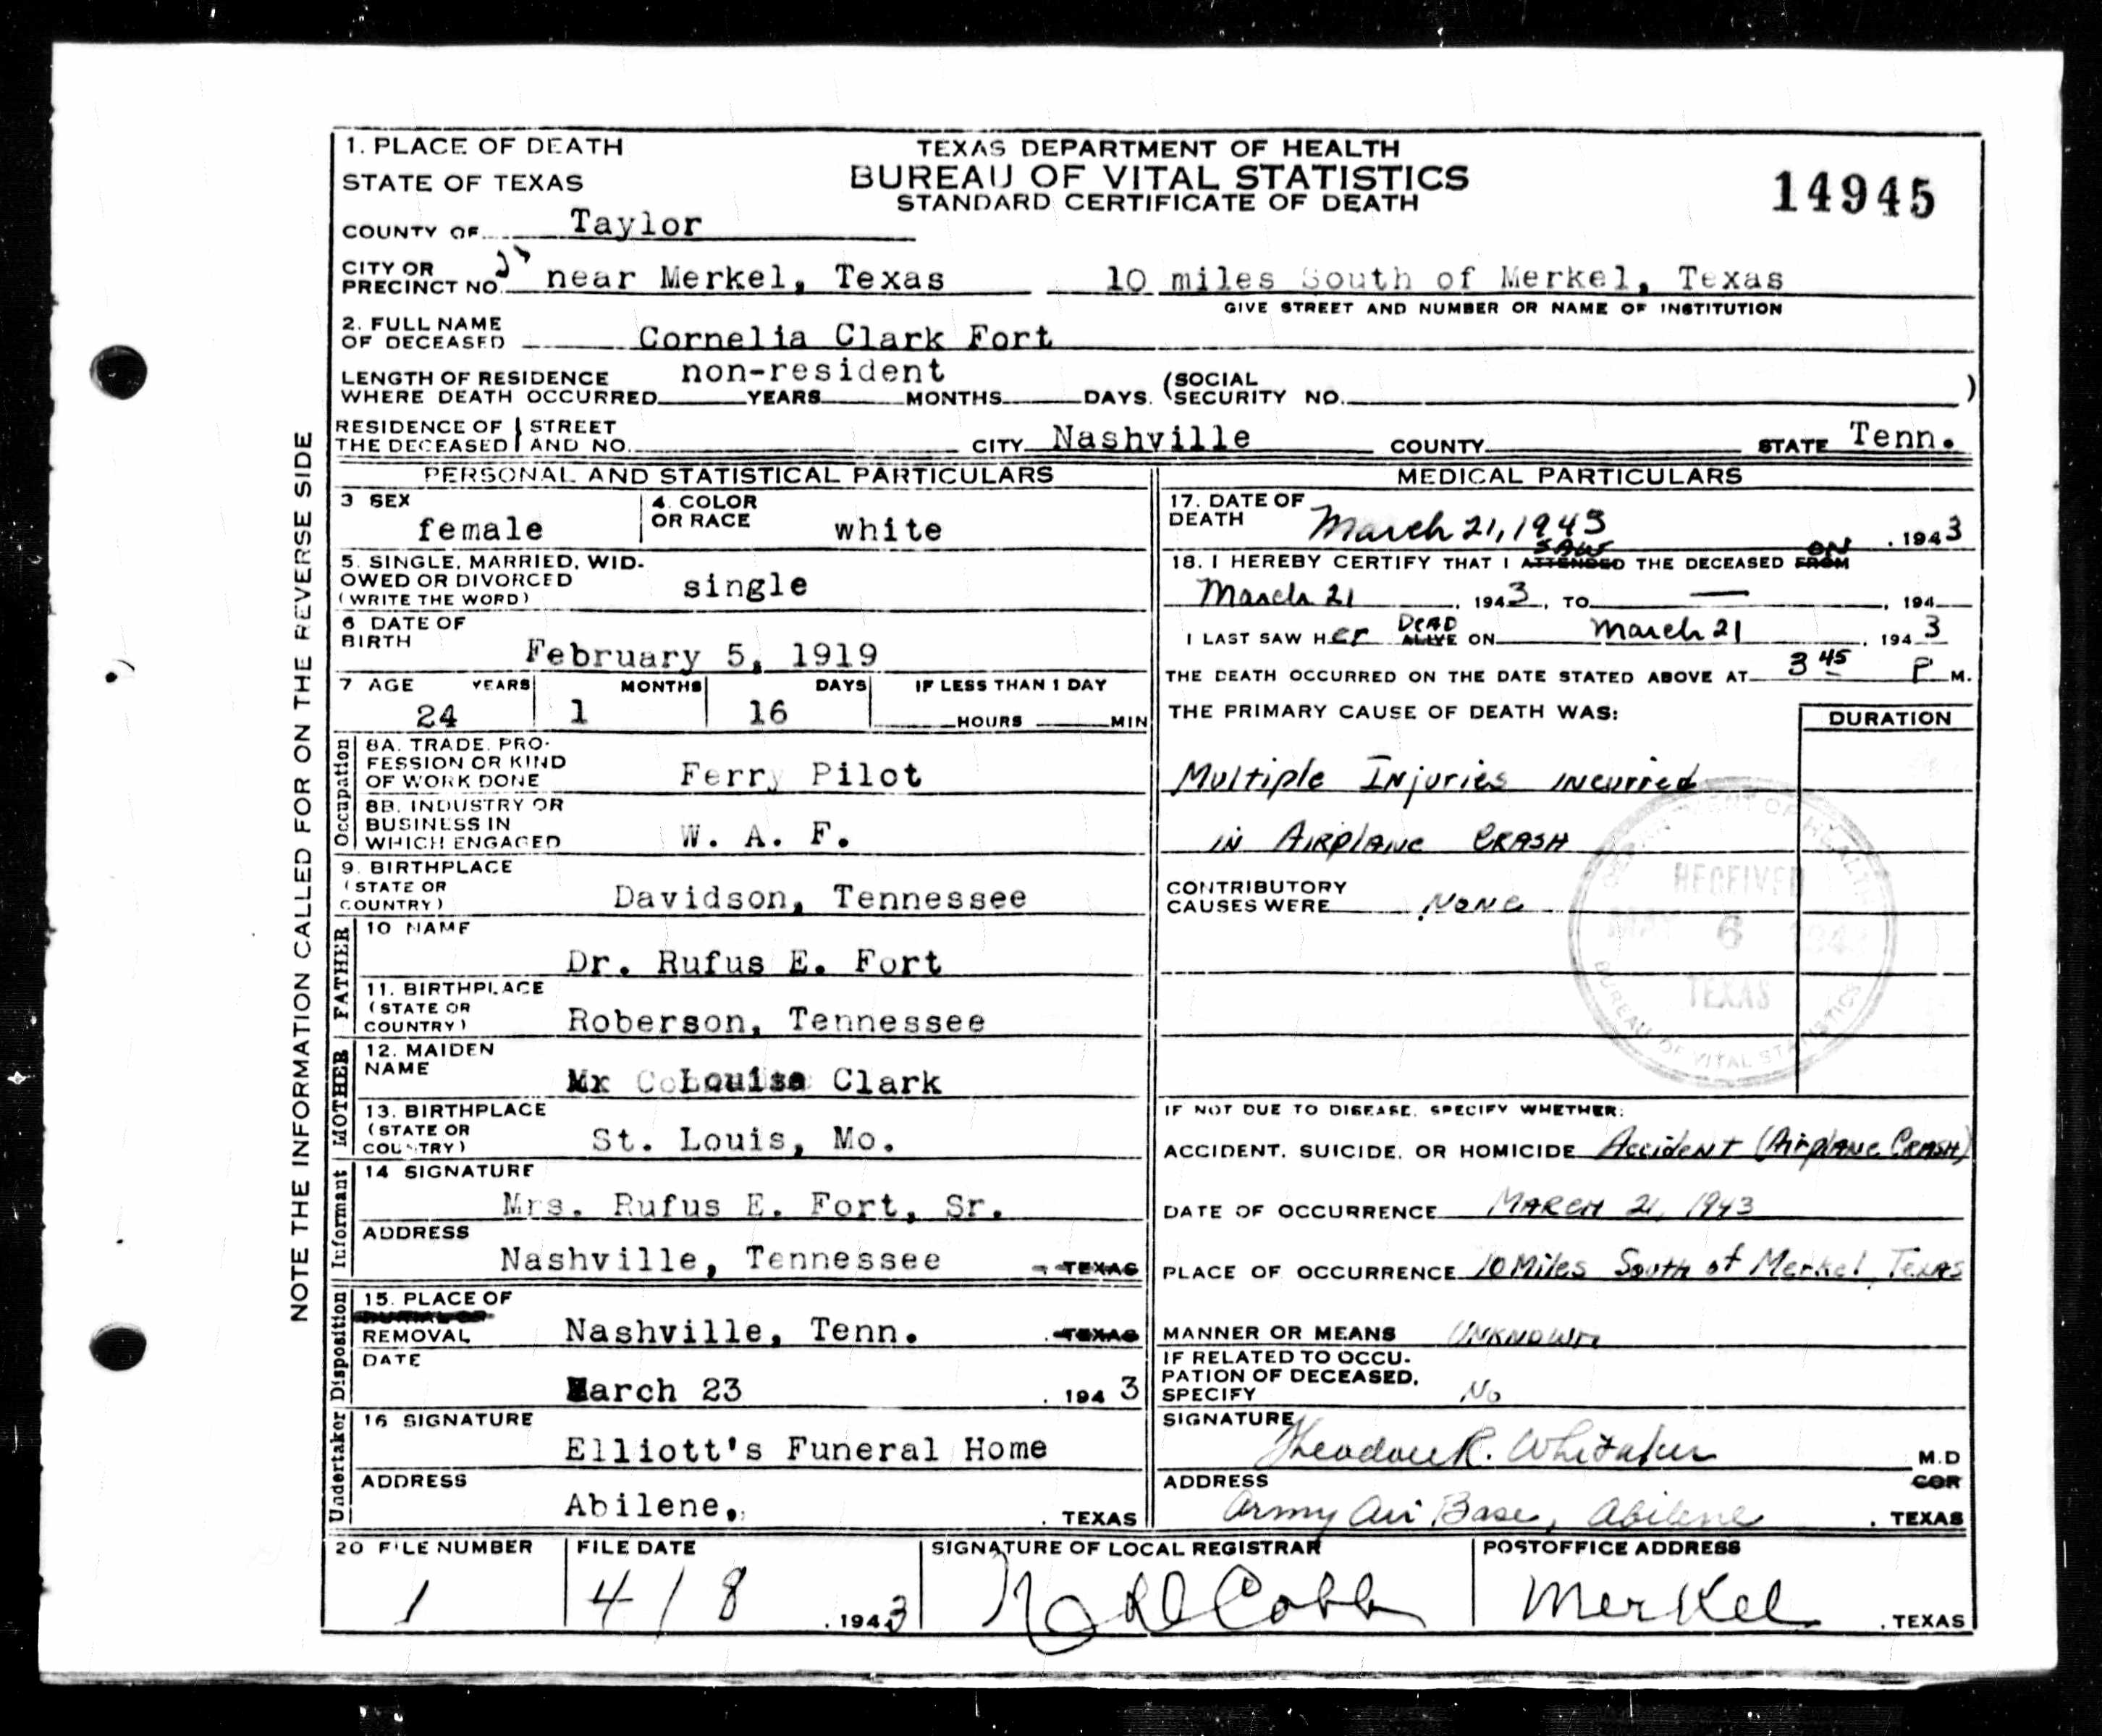 NOTE THE INFORMATION CALLED FOR ON THE REVERSE SIDE
1. PLACE OF DEATH
STATE OF TEXAS
TEXAS DEPARTMENT OF HEALTH
BUREAU OF VITAL STATISTICS
STANDARD CERTIFICATE OF DEATH
14945
COUNTY OF Taylor
CITY OR PRECINCT NO. near Merkel, Texas 10 miles South of Merkel, Texas
GIVE STREET AND NUMBER OR NAME OF INSTITUTION
2. FULL NAME OF DECEASED Cornelia Clark Fort
LENGTH OF RESIDENCE non-resident
WHERE DEATH OCCURRED YEARS MONTHS DAYS. (SOCIAL SECURITY NO. )
RESIDENCE OF THE DECEASED STREET AND NO. CITY Nashville COUNTY STATE Tenn.
PERSONAL AND STATISTICAL PARTICULARS
3 SEX female
4. COLOR OR RACE white
5. SINGLE, MARRIED, WIDOWED OR DIVORCED (WRITE THE WORD) single
6 DATE OF BIRTH February 5, 1919
7 AGE YEARS MONTHS DAYS IF LESS THAN 1 DAY
24 1 16 HOURS MIN
Occupation
8A. TRADE, PROFESSION OR KIND OF WORK DONE Ferry Pilot
8B. INDUSTRY OR BUSINESS IN WHICH ENGAGED W. A. F.
9. BIRTHPLACE (STATE OR COUNTRY) Davidson, Tennessee
FATHER
10 NAME Dr. Rufus E. Fort
11. BIRTHPLACE (STATE OR COUNTRY) Roberson, Tennessee
MOTHER
12. MAIDEN NAME Louise Clark
13. BIRTHPLACE (STATE OR COUNTRY) St. Louis, Mo.
Informant
14 SIGNATURE Mrs. Rufus E. Fort, Sr.
ADDRESS Nashville, Tennessee TEXAS
Disposition
15. PLACE OF REMOVAL Nashville, Tenn. TEXAS
DATE March 23 , 1943
Undertaker
16 SIGNATURE Elliott's Funeral Home
ADDRESS Abilene, , TEXAS
MEDICAL PARTICULARS
17. DATE OF DEATH March 21, 1943 , 1943
18. I HEREBY CERTIFY THAT I ATTENDED SAW THE DECEASED FROM ON
March 21 , 1943, TO — , 194
I LAST SAW Her ALIVE DEAD ON March 21 , 1943
THE DEATH OCCURRED ON THE DATE STATED ABOVE AT 3 45 P M.
THE PRIMARY CAUSE OF DEATH WAS: DURATION
Multiple Injuries incurred
in Airplane Crash
CONTRIBUTORY CAUSES WERE None
RECEIVED
6
TEXAS
BUREAU OF VITAL STATISTICS
IF NOT DUE TO DISEASE, SPECIFY WHETHER:
ACCIDENT, SUICIDE, OR HOMICIDE Accident (Airplane Crash)
DATE OF OCCURRENCE MARCH 21, 1943
PLACE OF OCCURRENCE 10 Miles South of Merkel, Texas
MANNER OR MEANS Unknown
IF RELATED TO OCCUPATION OF DECEASED, SPECIFY No
SIGNATURE Theodore R. Whitaker M.D
COR
ADDRESS Army Air Base, Abilene , TEXAS
20 FILE NUMBER 1
FILE DATE 4/8 , 1943
SIGNATURE OF LOCAL REGISTRAR Cobb
POSTOFFICE ADDRESS Merkel , TEXAS